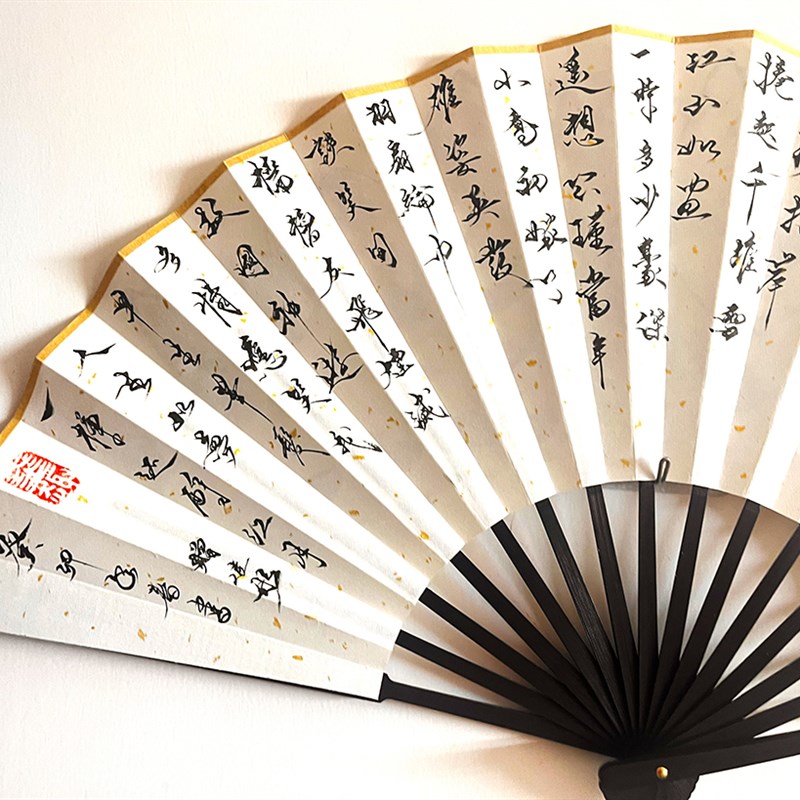 拍岸
捲起千堆雪
江山如畫
一時多少豪傑
遙想公瑾當年
小喬初嫁了
雄姿英發
羽扇綸巾
談笑間
檣櫓灰飛煙滅
故國神遊
多情應笑我
早生華髮
人生如夢
一樽還酹江月
癸卯年春書